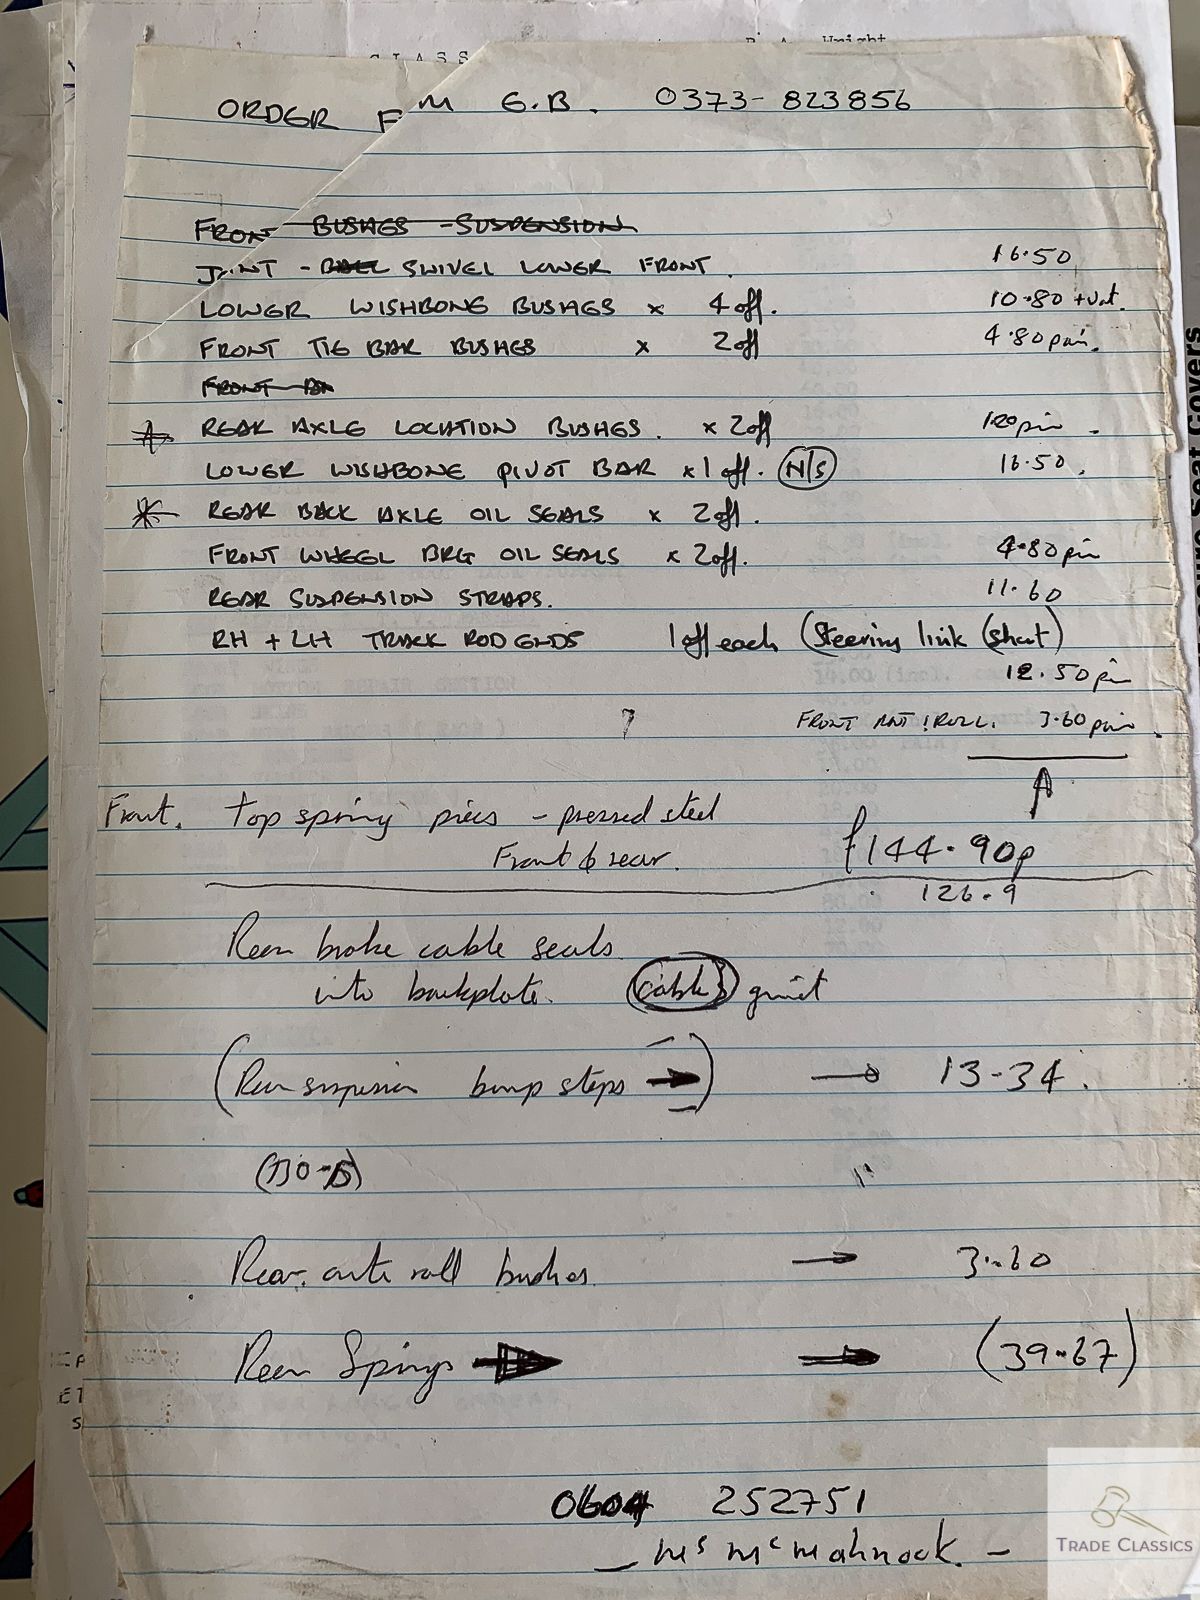 CLASS
ORDER F M G.B. 0373-823856
FRONT BUSHES - SUSPENSION
JOINT - BALL SWIVEL LOWER FRONT. 16.50
LOWER WISHBONE BUSHES x 4 off. 10.80 + vat.
FRONT TIE BAR BUSHES x 2 off 4.80 pair.
FRONT
REAR AXLE LOCATION BUSHES. x 2 off
LOWER WISHBONE PIVOT BAR x 1 off. N/S 16.50.
REAR BACK AXLE OIL SEALS x 2 off.
FRONT WHEEL BRG OIL SEALS x 2 off. 4.80 pair
REAR SUSPENSION STRAPS. 11.60
RH + LH TRACK ROD ENDS 1 off each (Steering link (short)
12.50 pair
FRONT ANTI ROLL. 3.60 pair.
Front. top spring pieces - pressed steel
Front & rear. £144.90p
126.9
Rear brake cable seals
into backplate. cables
(Rear suspension bump stops → ) → 13-34.
Rear. ante roll bushes. → 3.60
Rear Springs → → (39.67)
0604 252751
- Ms McMahnock. -
seat covers
TRADE CLASSICS